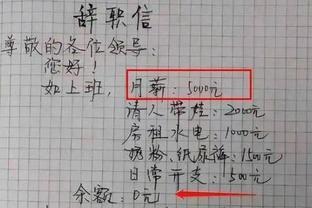 辞职信
尊敬的各位领导:
您好!
如上班,月薪:5000元
请人带娃:2000元
房租水电:1000元
奶粉、纸尿裤:1500元
日常开支:1500元
余额:0元